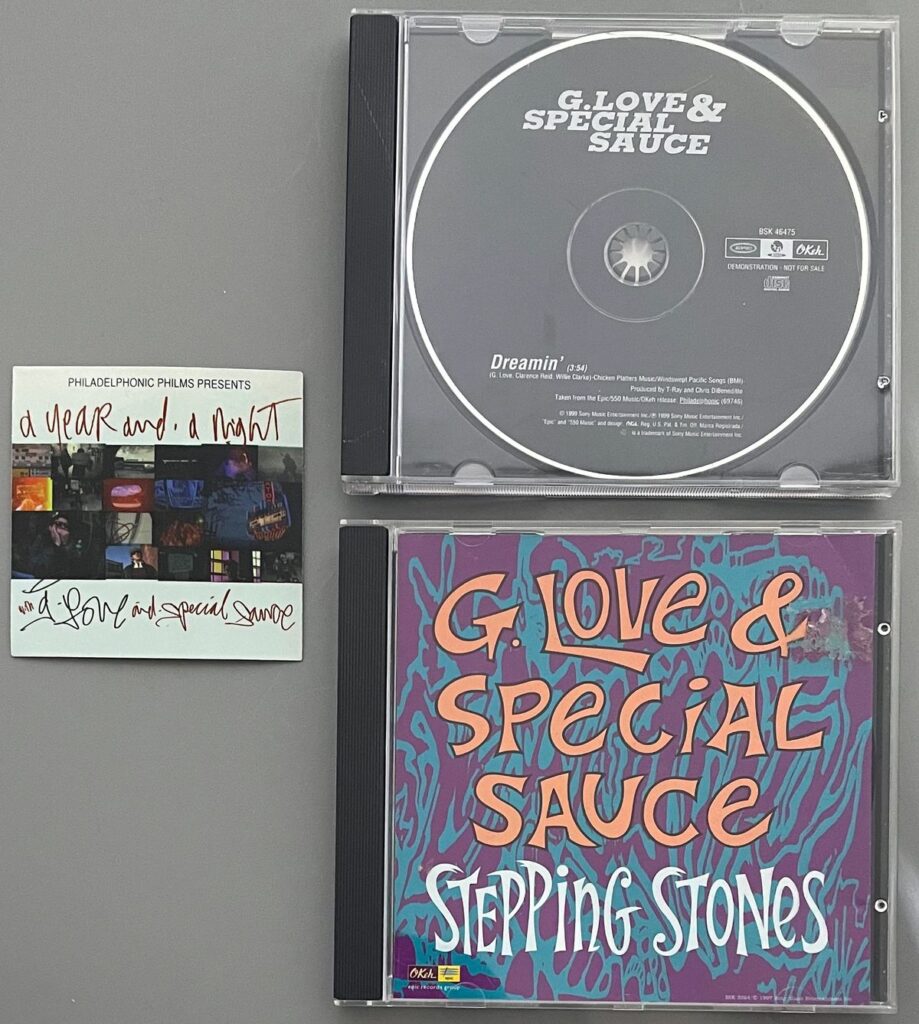 PHILADELPHONIC PHILMS PRESENTS
a YEAR and. a night
with G. Love and special sauce
G.LOVE &
SPECIAL
SAUCE
BSK 46475
epic
OKeh
DEMONSTRATION - NOT FOR SALE
Dreamin' (3:54)
(G. Love, Clarence Reid, Willie Clarke)-Chicken Platters Music/Windswept Pacific Songs (BMI)
Produced by T-Ray and Chris DiBeneditto
Taken from the Epic/550 Music/OKeh release: Philadelphonic (69746)
© 1999 Sony Music Entertainment Inc./℗ 1999 Sony Music Entertainment Inc./
"Epic" and "550 Music" and design, OKeh, Reg. U.S. Pat. & Tm. Off. Marca Registrada./
is a trademark of Sony Music Entertainment Inc.
G. LOVE &
SPECIAL
SAUCE
STEPPING STONES
OKeh
epic records group